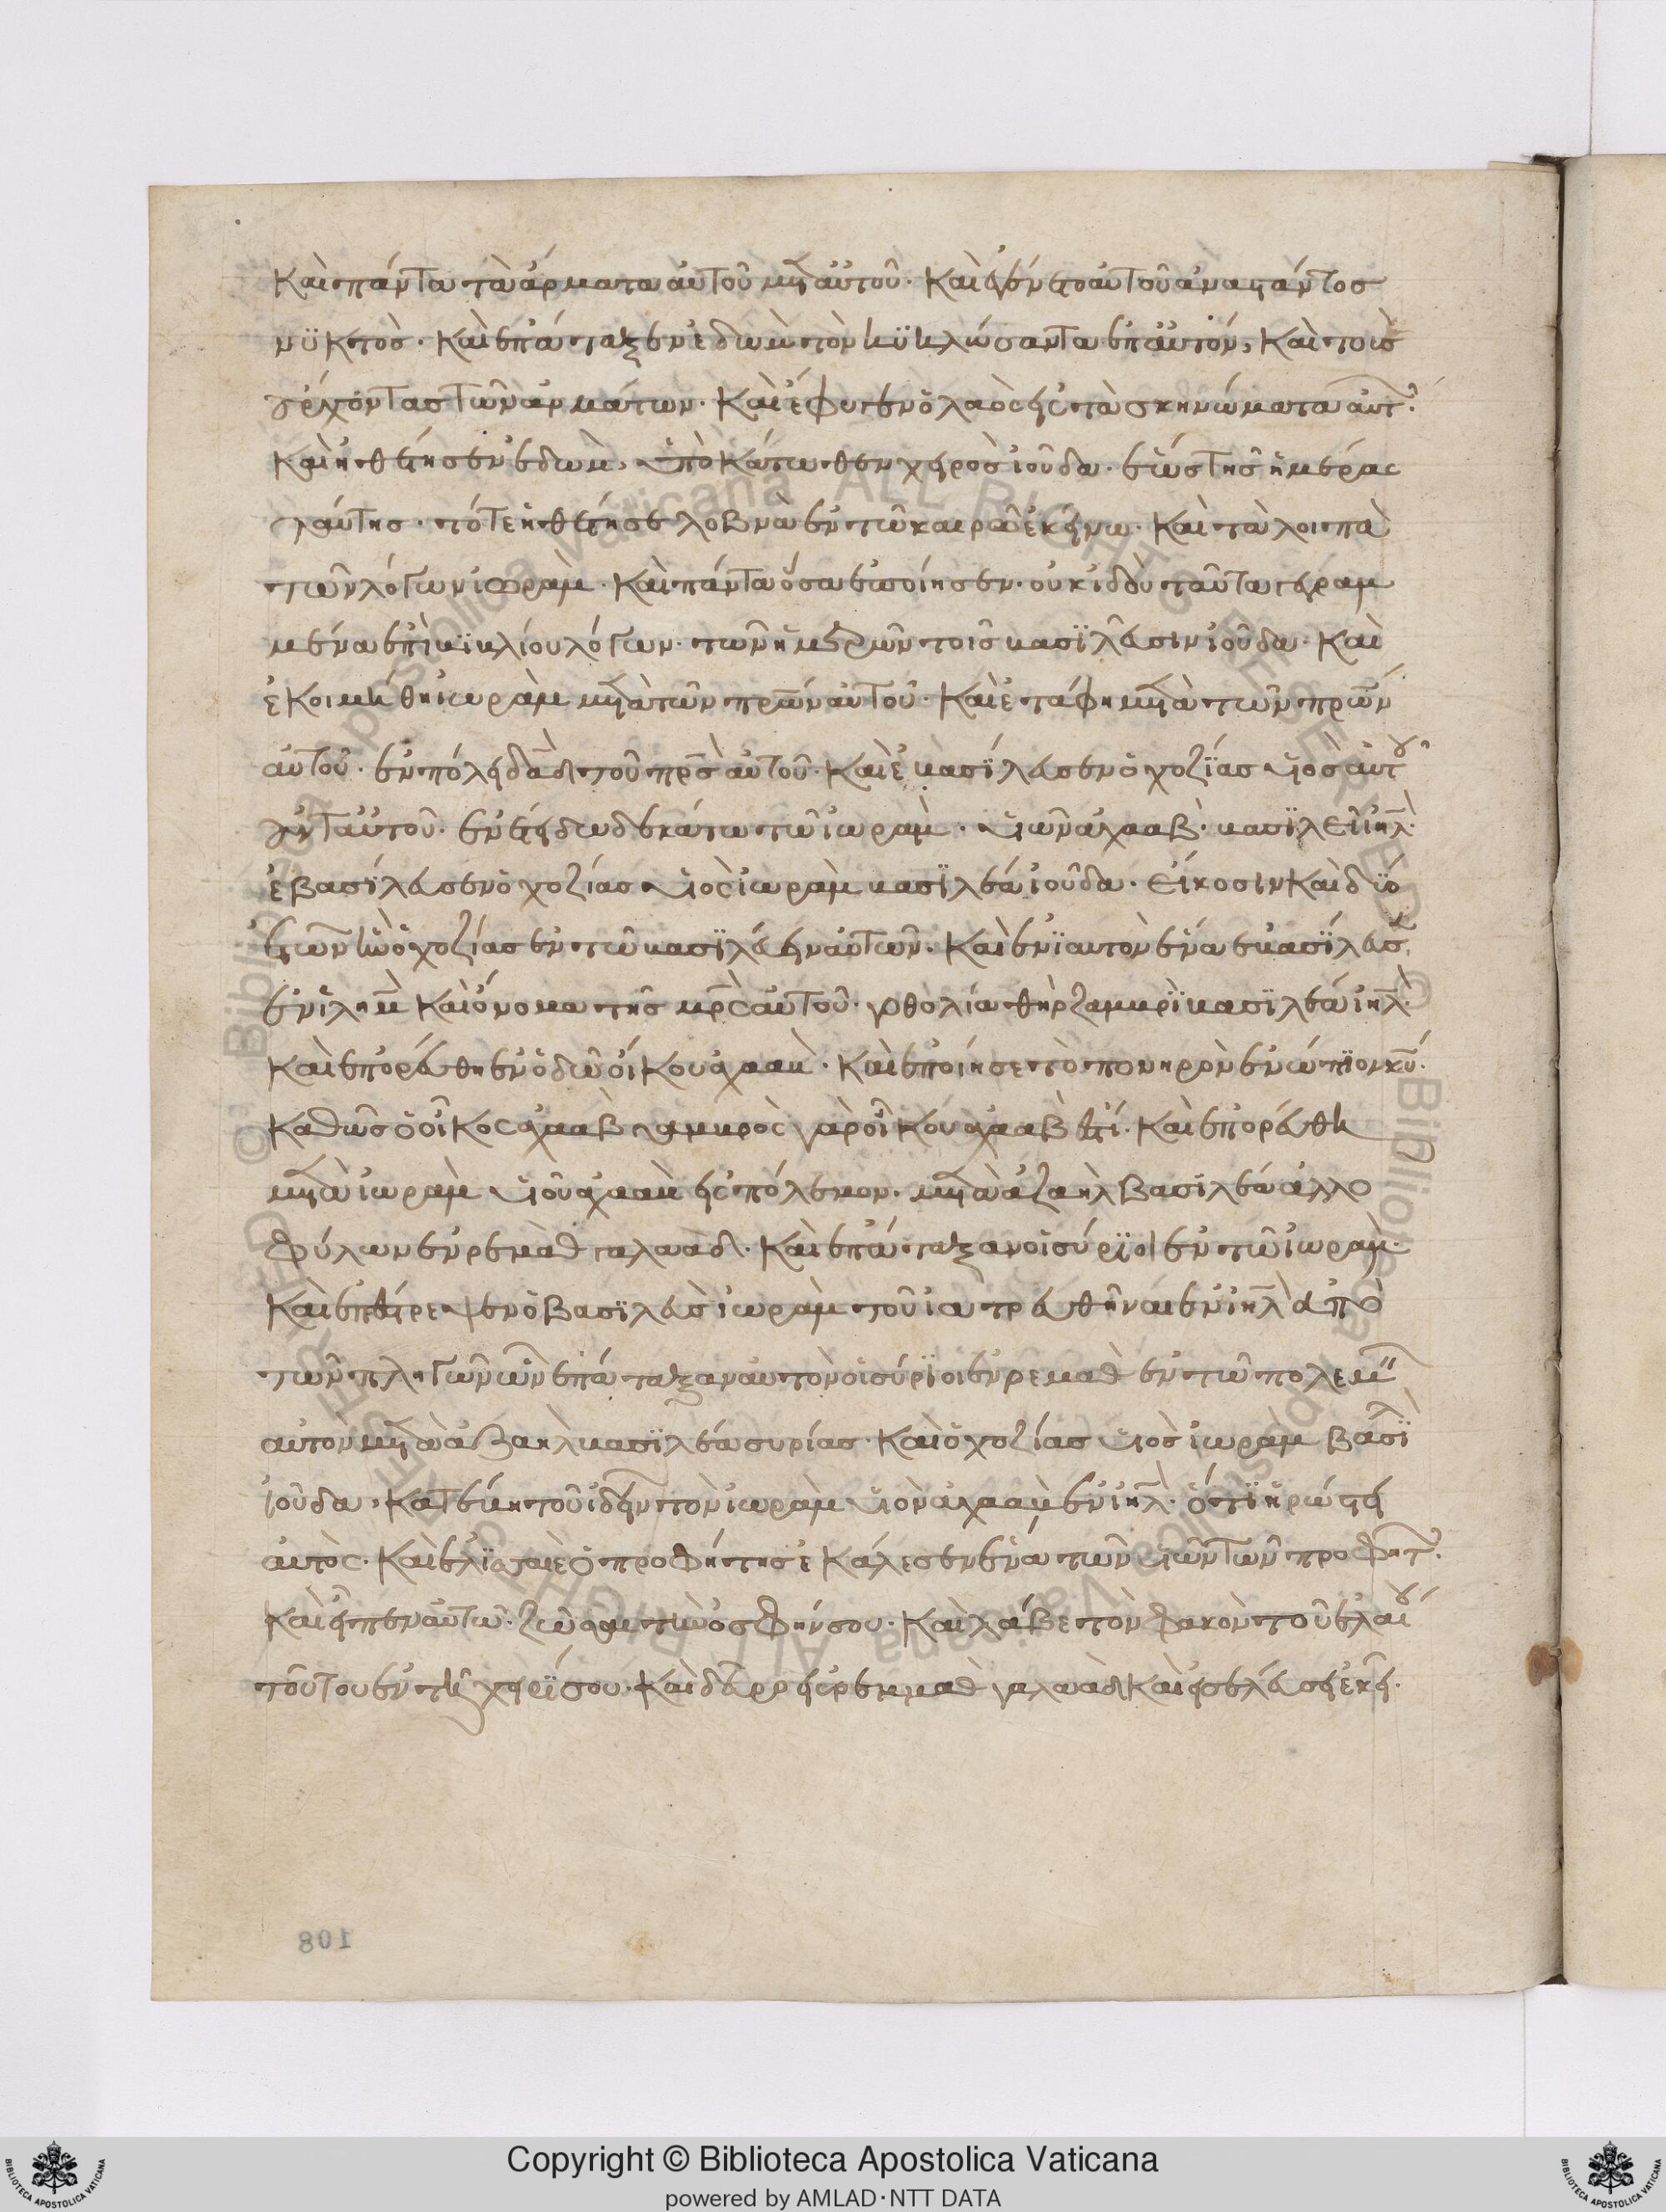 Καὶ πάντα τὰ ἅρματα αὐτοῦ μετ αὐτοῦ· Καὶ ἐγένετο αὐτοῦ ἀναστάντος
νϋκτὸς· Καὶ ἐπάταξεν ἐδὼμ τὸν κϋκλώσαντα ἐπ αὐτόν, Καὶ τοὺσ
ἄρχοντας τῶν ἁρμάτων· Καὶ ἔφυγεν ὁ λαὸς εἰς τὰ σκηνώματα αὐτ
Καὶ ἠθέτησεν ἐδὼμ, ὑπὸ Κάτωθεν χειρὸς ἰούδα· ἕως τῆς ἡμέρας
ταύτης· τότε ἠθέτησε λοβνὰ ἐν τῶ καιρῶ ἐκείνω· Καὶ τὰ λοιπὰ
τῶν λόγων ἰωρὰμ· Καὶ πάντα ὅσα ἐποίησεν· οὐκ ἰδοὺ ταῦτα γεγραμ
μένα ἐπὶ βϊβλίου λόγων· τῶν ἡμερῶν τοῖς βασϊλεῦσιν ἰούδα· Καὶ
ἐκοιμήθη ἰωρὰμ μετὰ τῶν πρων αὐτοῦ· Καὶ ἐτάφη μετὰ τῶν πρων
αὐτοῦ· ἐν πόλει δαδ τοῦ πρσ αὐτοῦ· Καὶ ἐβασϊλευσεν ὀχοζϊας υἱὸς αὐτοῦ
ἀντ αὐτοῦ· ἐν ἔτει δωδεκάτω τῶ ἰωρὰμ· υἱῶ ἀχαὰβ· βασϊλεῖ ιηλ·
ἐβασϊλευσεν ὀχοζίας υἱὸς ἰωρὰμ βασϊλέως ἰούδα· εἴκοσιν Καὶ δϋο
ἐτῶν ἦν ὀχοζίας ἐν τῶ βασϊλεύειν αὐτὸν· Καὶ ἐνϊαυτὸν ἕνα ἐβασϊλευσ
ἐν ιλημ Καὶ ὄνομα τῆς μρς αὐτοῦ· γοθολία θηρ ζαμβρὶ βασϊλέως ιηλ·
Καὶ ἐπορεύθη ἐν ὁδῶ οἴκου ἀχαὰβ· Καὶ ἐποίησε τὸ πονηρὸν ἐνώπϊον κυ·
Καθὼς ὁ οἶκος ἀχαὰβ γαμβρὸς γὰρ οἴκου ἀχαὰβ ἐστί· Καὶ ἐπορεύθη
μετὰ ἰωρὰμ υἱοῦ ἀχαὰβ εἰς πόλεμον· μετὰ ἀζαὴλ βασϊλέως ἀλλο
φύλων ἐν ρεμὰθ γαλαάδ· Καὶ ἐπάταξαν οἱ σύρϊοι ἐν τῶ ἰωρὰμ·
Καὶ ἐπέστρεψεν ὁ βασϊλεὺς ἰωρὰμ τοῦ ἰατρευθῆναι ἐν ιηλ ἀπὸ
τῶν πληγῶν ὧν ἐπάταξαν αὐτὸν οἱ σύρϊοι ἐν ρεμὰθ ἐν τῶ πολεμ
αὐτὸν μετὰ ἀζαὴλ βασϊλέως συρίας· Καὶ ὀχοζίας υἱὸς ἰωρὰμ βασϊλ
ἰούδα· Κατέβη τοῦ ἰδεῖν τὸν ἰωρὰμ υἱὸν ἀχαὰβ ἐν ιηλ· ὅτϊ ἠρώστει
αὐτὸς· Καὶ ἐλϊσσαιὲ ὁ προφήτης ἐκάλεσεν ἕνα τῶν υἱῶν τῶν προφητ·
Καὶ εἶπεν αὐτῶ· ζῶσαι τὴν ὀσφήν σου· Καὶ λάβε τὸν φακὸν τοῦ ἐλαίου
τούτου ἐν τῆ χειρΐ σου· Καὶ δεῦρο εἰς ρεμμὰθ γαλαάδ Καὶ εἰσελεύσει ἐκεῖ·
108
Copyright © Biblioteca Apostolica Vaticana
powered by AMLAD·NTT DATA